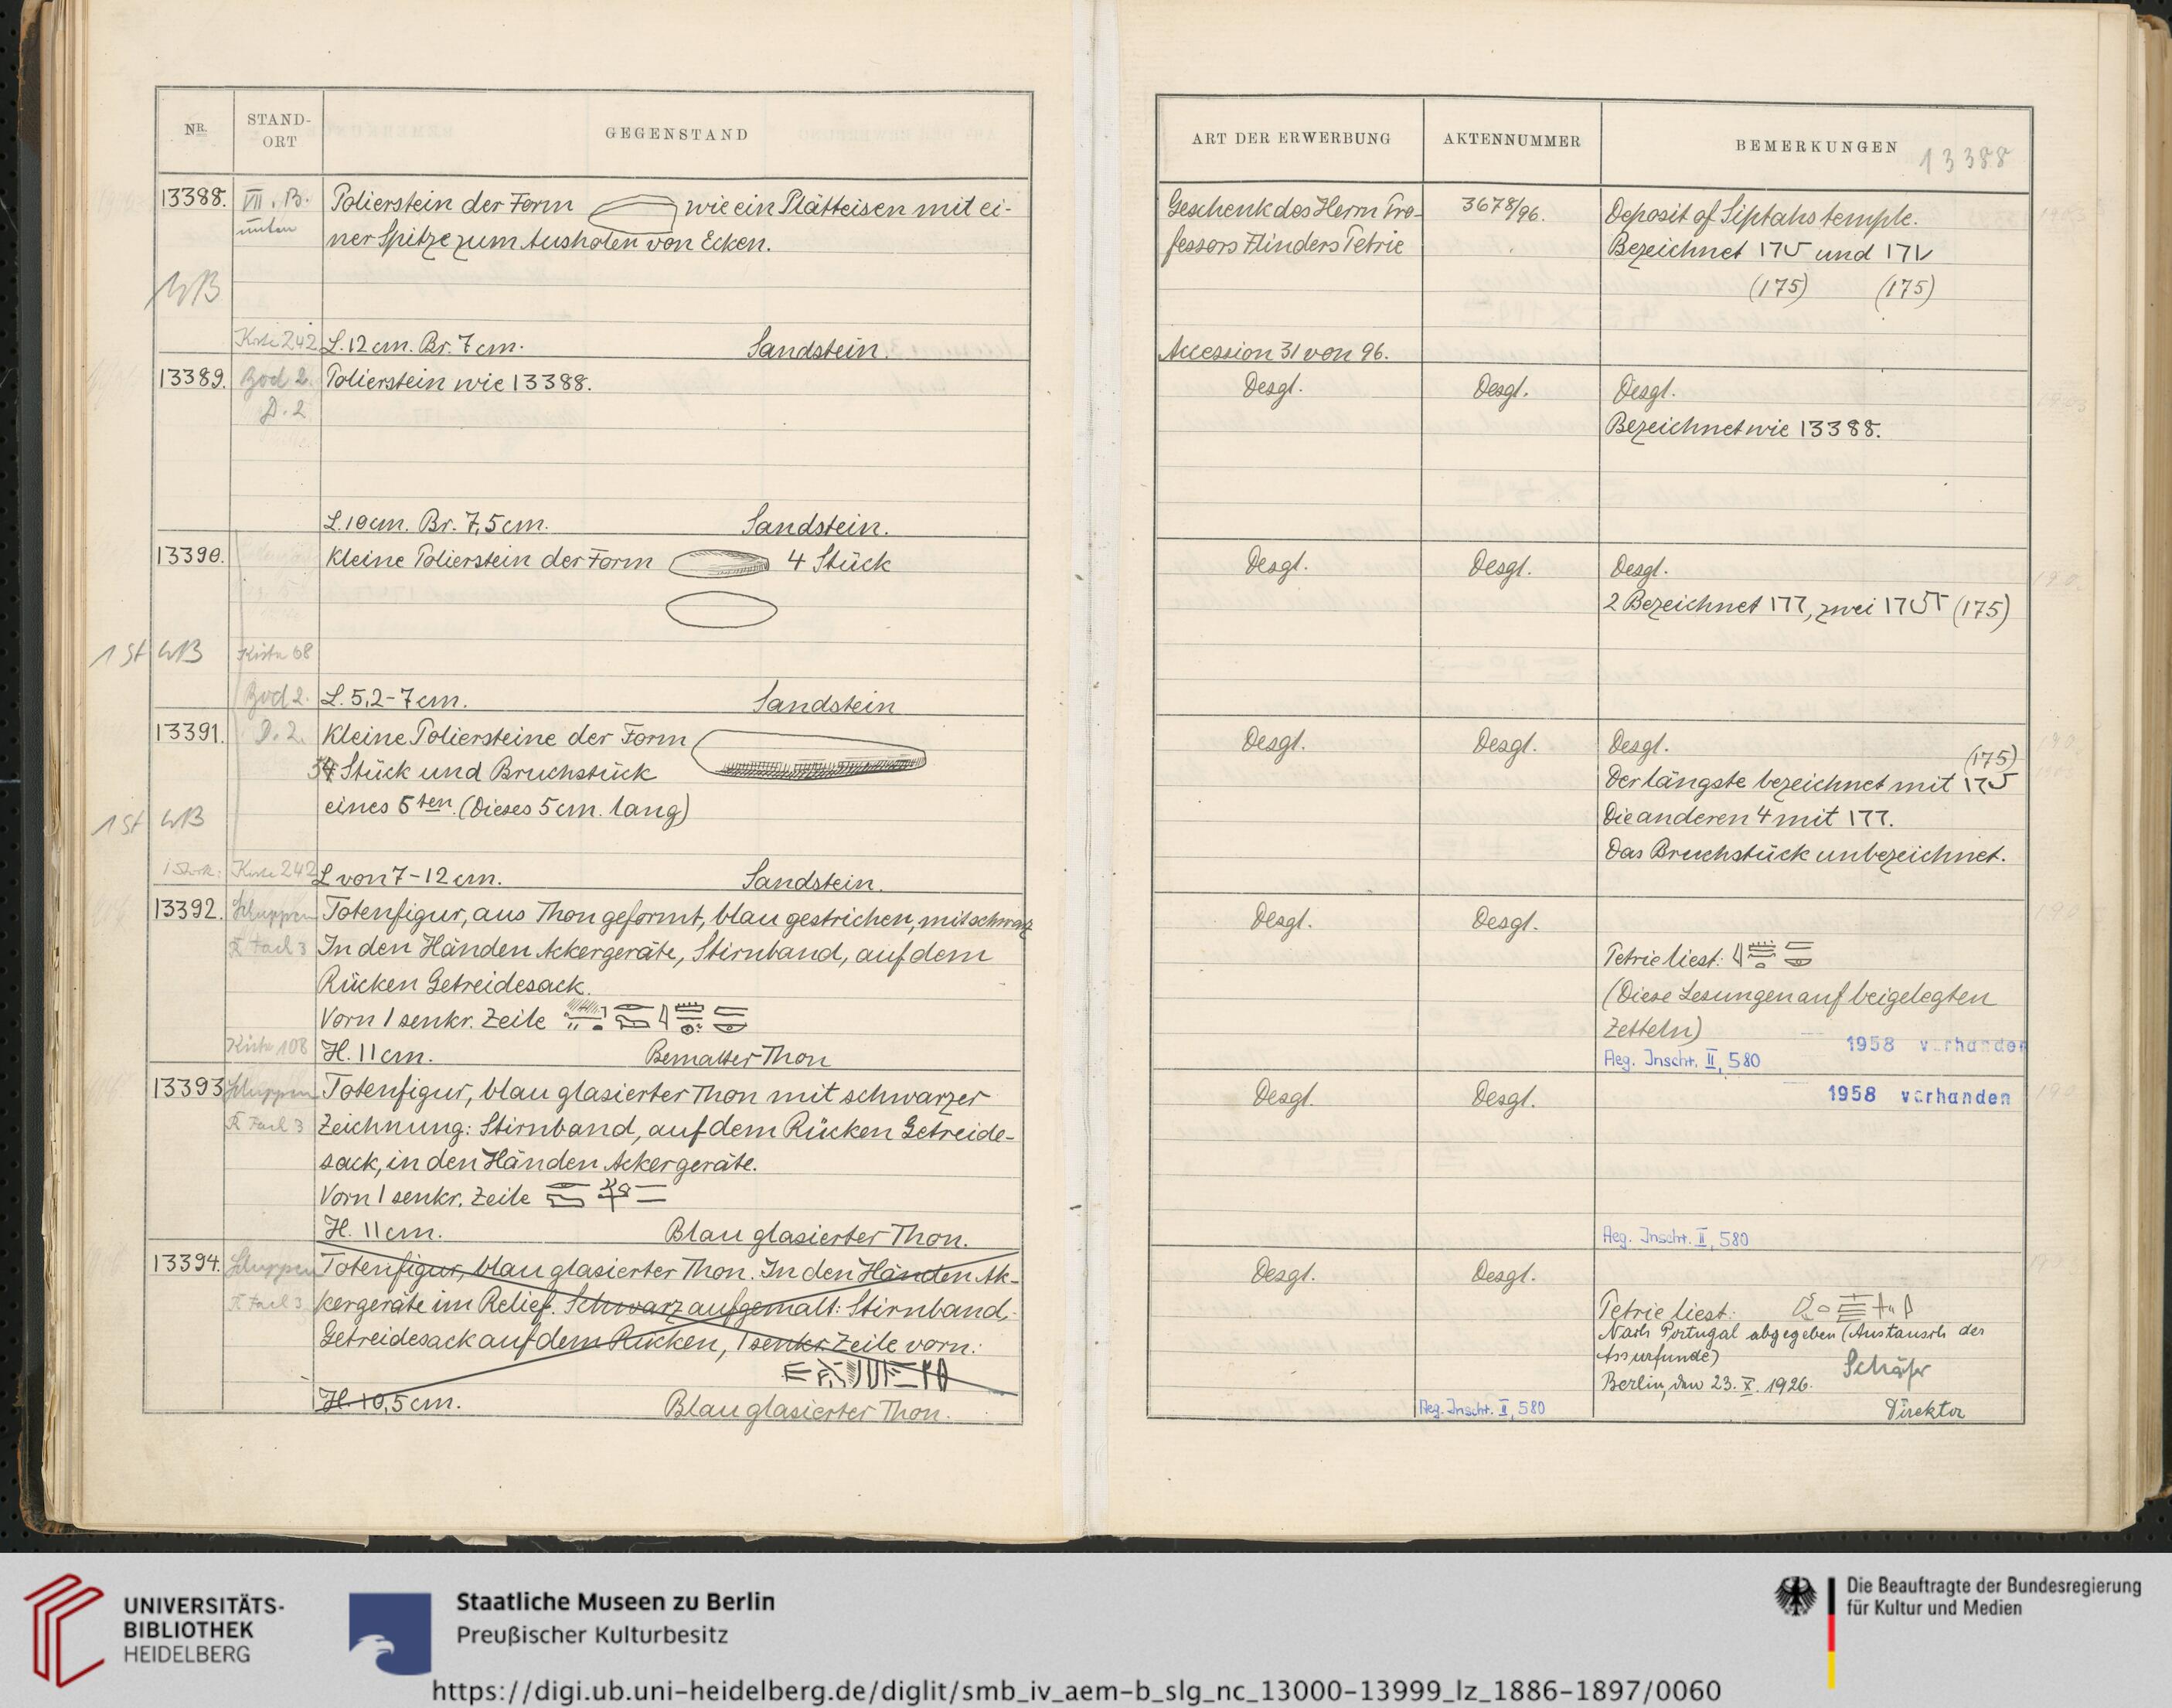 NR.
STAND-
ORT
GEGENSTAND
13388.
VII. B.
unten
Polierstein der Form wie ein Plätteisen mit ei-
ner Spitze zum Ausholen von Ecken.
WB
Kiste 242
L. 12 cm. Br. 7 cm. Sandstein.
13389.
Bod 2.
D. 2
Polierstein wie 13388.
L. 10 cm. Br. 7,5 cm. Sandstein.
13390.
Kleine Polierstein der Form 4 Stück
1 St WB
Kiste 68
Bod 2.
L. 5,2-7 cm. Sandstein
13391.
D. 2.
Kleine Poliersteine der Form
Stück und Bruchstück
eines 5ten. (Dieses 5 cm. lang)
1 St WB
Kiste 242
L von 7-12 cm. Sandstein.
13392.
Schuppen
Fach 3
Totenfigur, aus Thon geformt, blau gestrichen, mit schwarz
In den Händen Ackergeräte, Stirnband, auf dem
Rücken Getreidesack.
Vorn 1 senkr. Zeile
Kiste 108
H. 11 cm. Bemalter Thon
13393
Schuppen
Fach 3
Totenfigur, blau glasierter Thon mit schwarzer
Zeichnung: Stirnband, auf dem Rücken Getreide-
sack, in den Händen Ackergeräte.
Vorn 1 senkr. Zeile
H. 11 cm. Blau glasierter Thon.
13394.
Schuppen
Fach 3
Totenfigur, blau glasierter Thon. In den Händen Ak-
kergeräte im Relief. Schwarz aufgemalt: Stirnband,
Getreidesack auf dem Rücken, 1 senkr. Zeile vorn:
H. 10,5 cm. Blau glasierter Thon.
ART DER ERWERBUNG
AKTENNUMMER
BEMERKUNGEN
13388
Geschenk des Herrn Pro-
fessors Flinders Petrie
3678/96.
Deposit of Siptahs temple.
Bezeichnet 175 und 17V
(175) (175)
Accession 31 von 96.
Desgl. Desgl. Desgl.
Bezeichnet wie 13388.
Desgl. Desgl. Desgl.
2 Bezeichnet 177, zwei 175 (175)
Desgl. Desgl. Desgl.
(175)
Der längste bezeichnet mit 175
Die anderen 4 mit 177.
Das Bruchstück unbezeichnet.
Desgl. Desgl.
Petrie liest:
(Diese Lesungen auf beigelegten
Zetteln)
1958 vorhanden
Aeg. Inschr. II, 580
Desgl. Desgl.
1958 vorhanden
Aeg. Inschr. II, 580
Desgl. Desgl.
Petrie liest:
Nach Portugal abgegeben (Austausch der
Assurfunde)
Berlin, den 23. X. 1926.
Schäfer
Direktor
Aeg. Inschr. II, 580
UNIVERSITÄTS-
BIBLIOTHEK
HEIDELBERG
Staatliche Museen zu Berlin
Preußischer Kulturbesitz
Die Beauftragte der Bundesregierung
für Kultur und Medien
https://digi.ub.uni-heidelberg.de/diglit/smb_iv_aem-b_slg_nc_13000-13999_lz_1886-1897/0060